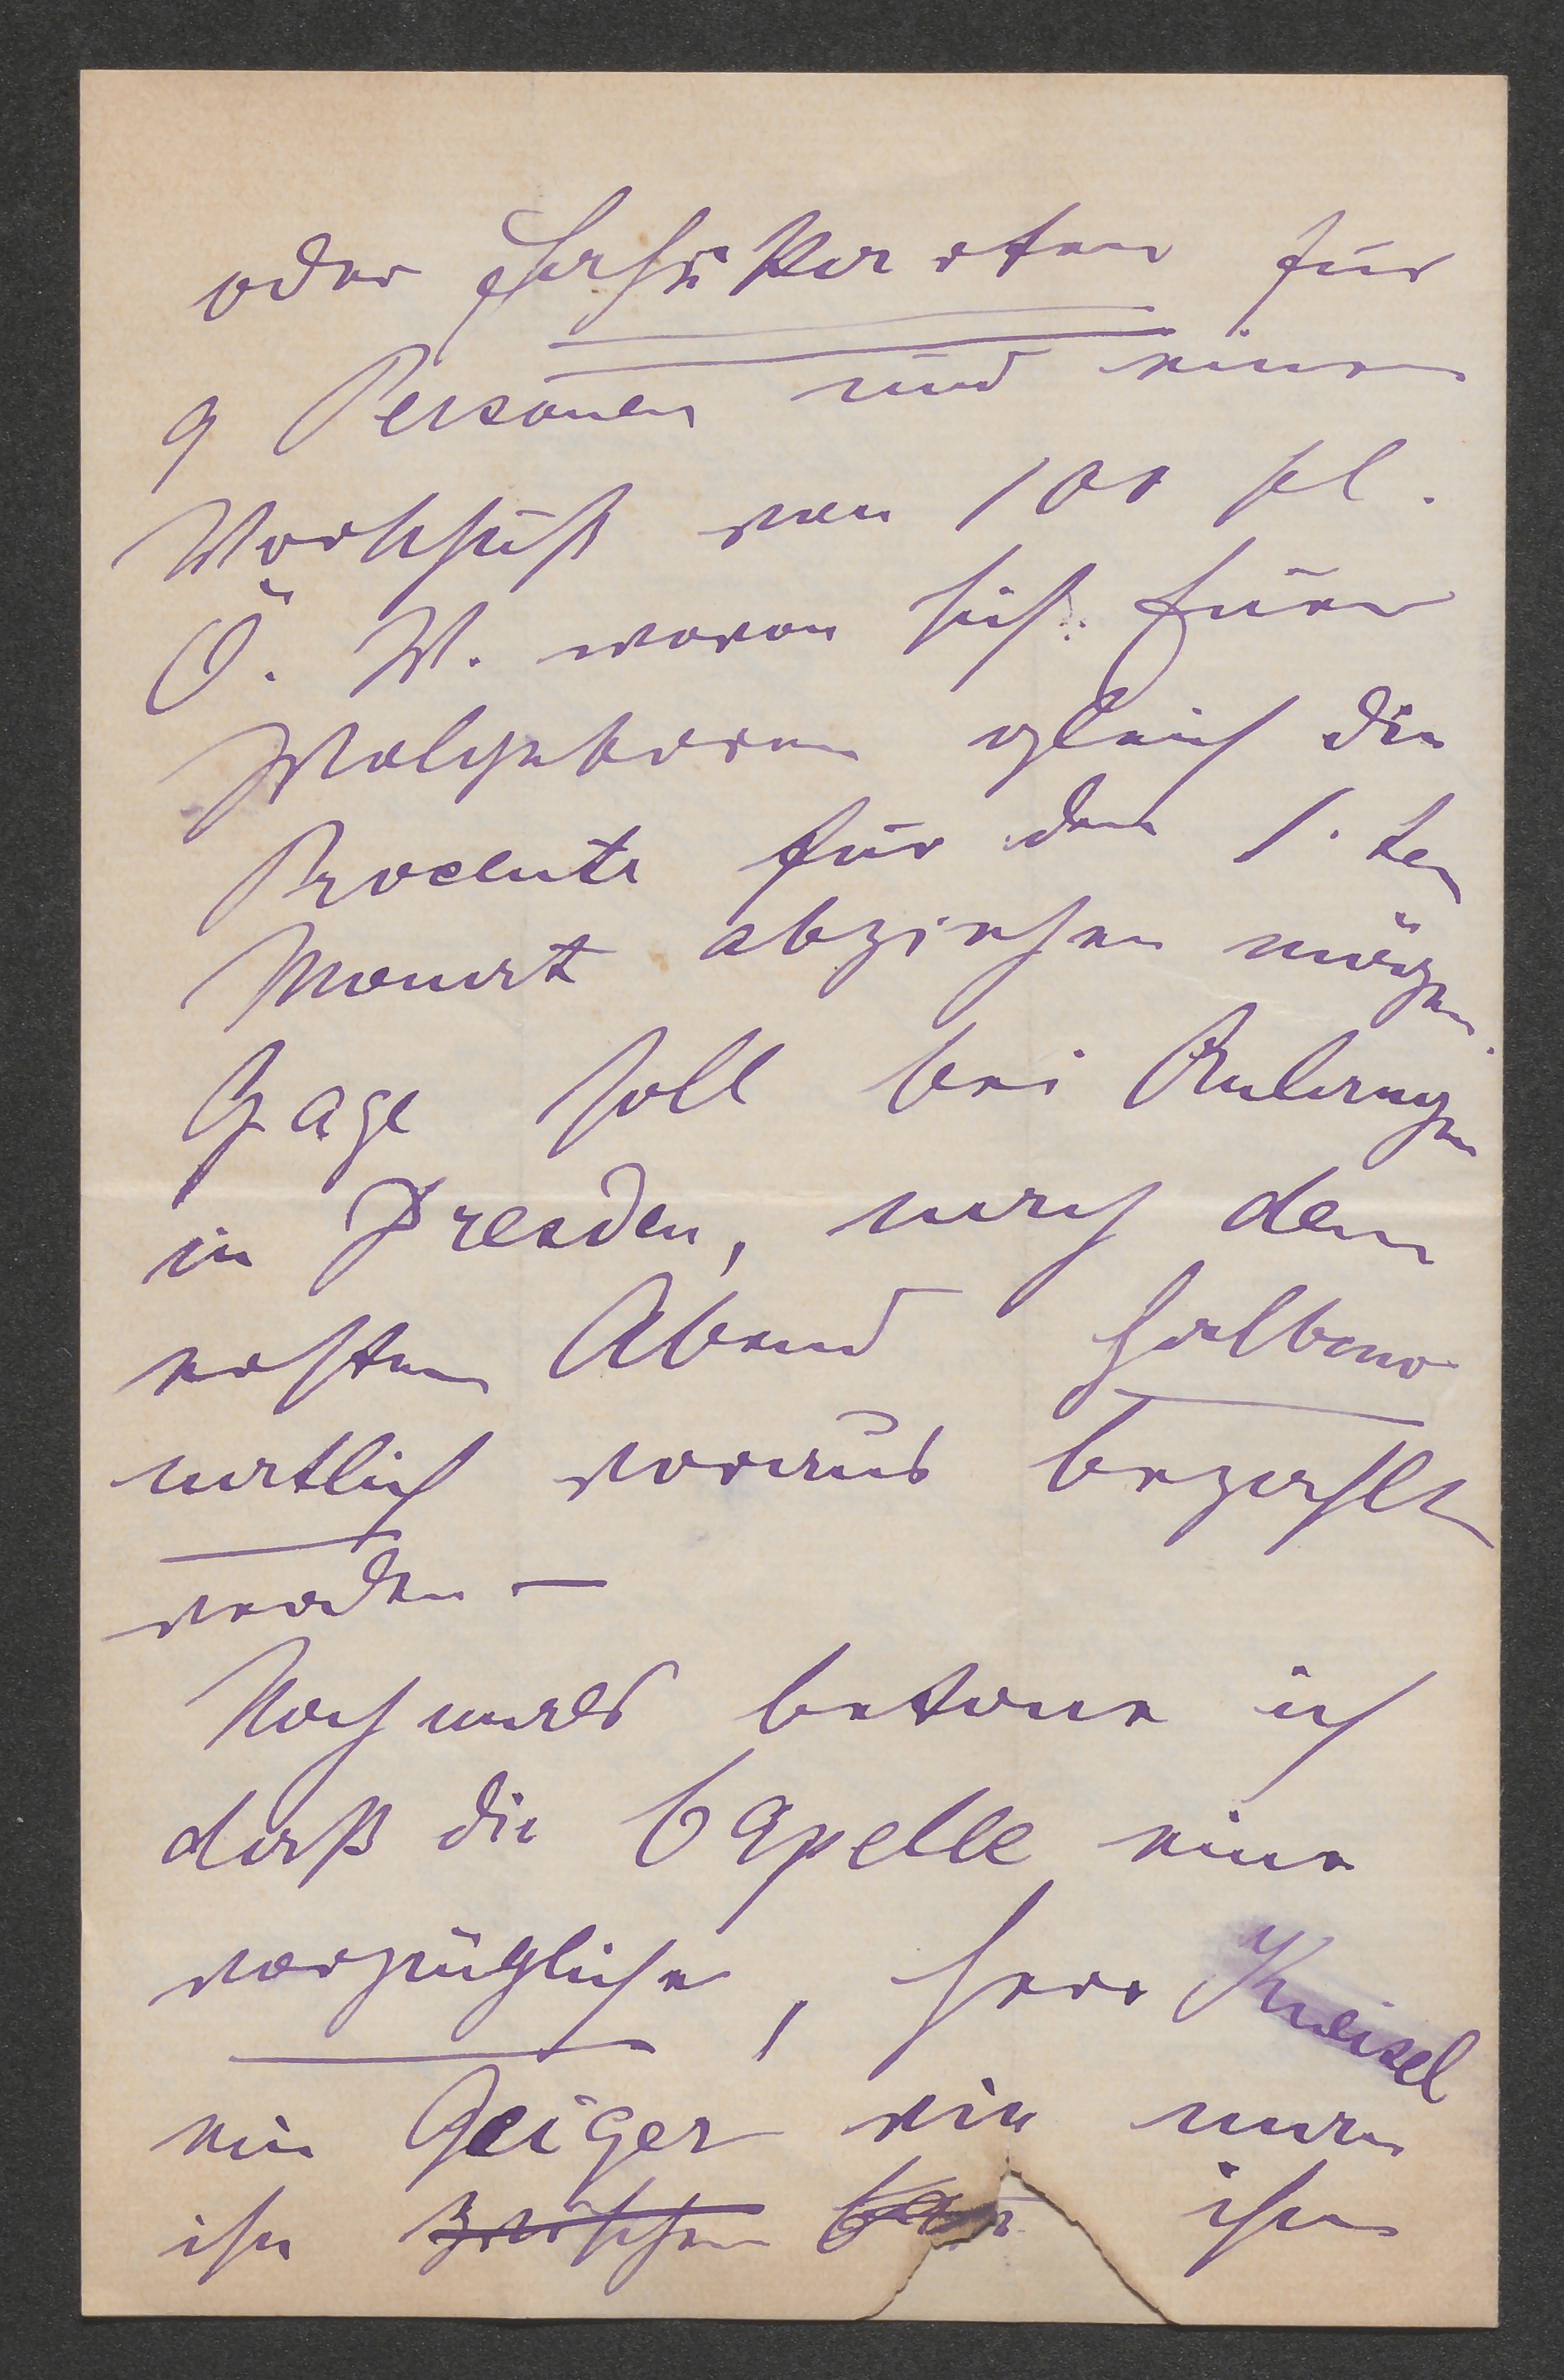 oder Fahrkarten für
9 Personen und einen
Vorschuß von 100 fl.
Ö. W. wovon sich Euer
Wolgeboren gleich die
Procente für den 1. ten
Monat abziehen mögen.
Gage soll bei Anlangen
in Dresden, nach dem
ersten Abend halbmo
natlich voraus bezahlt
werden —
Nochmals betone ich
daß die Capelle eine
vorzügliche, Herr Kneisel
ein Geiger wie man
ihn zwischen ihn